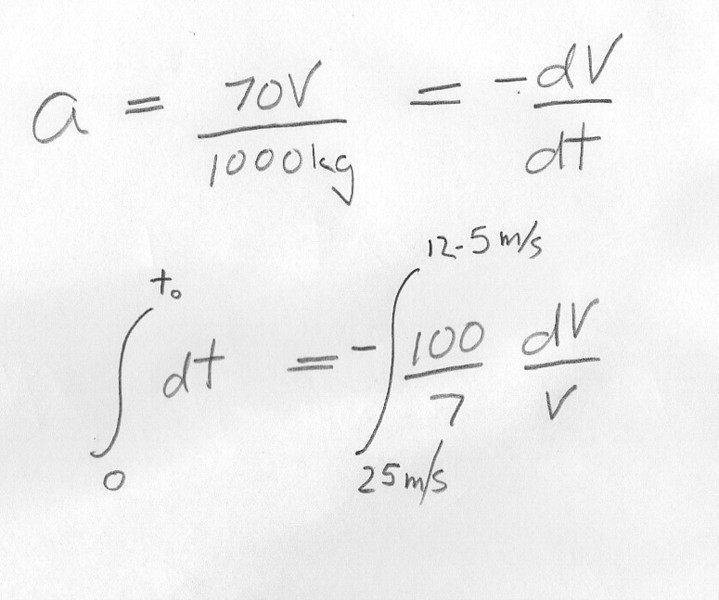 a = 70V / 1000kg = -dV / dt
∫₀^t₀ dt = -∫_25m/s^12.5m/s 100/7 dV/V